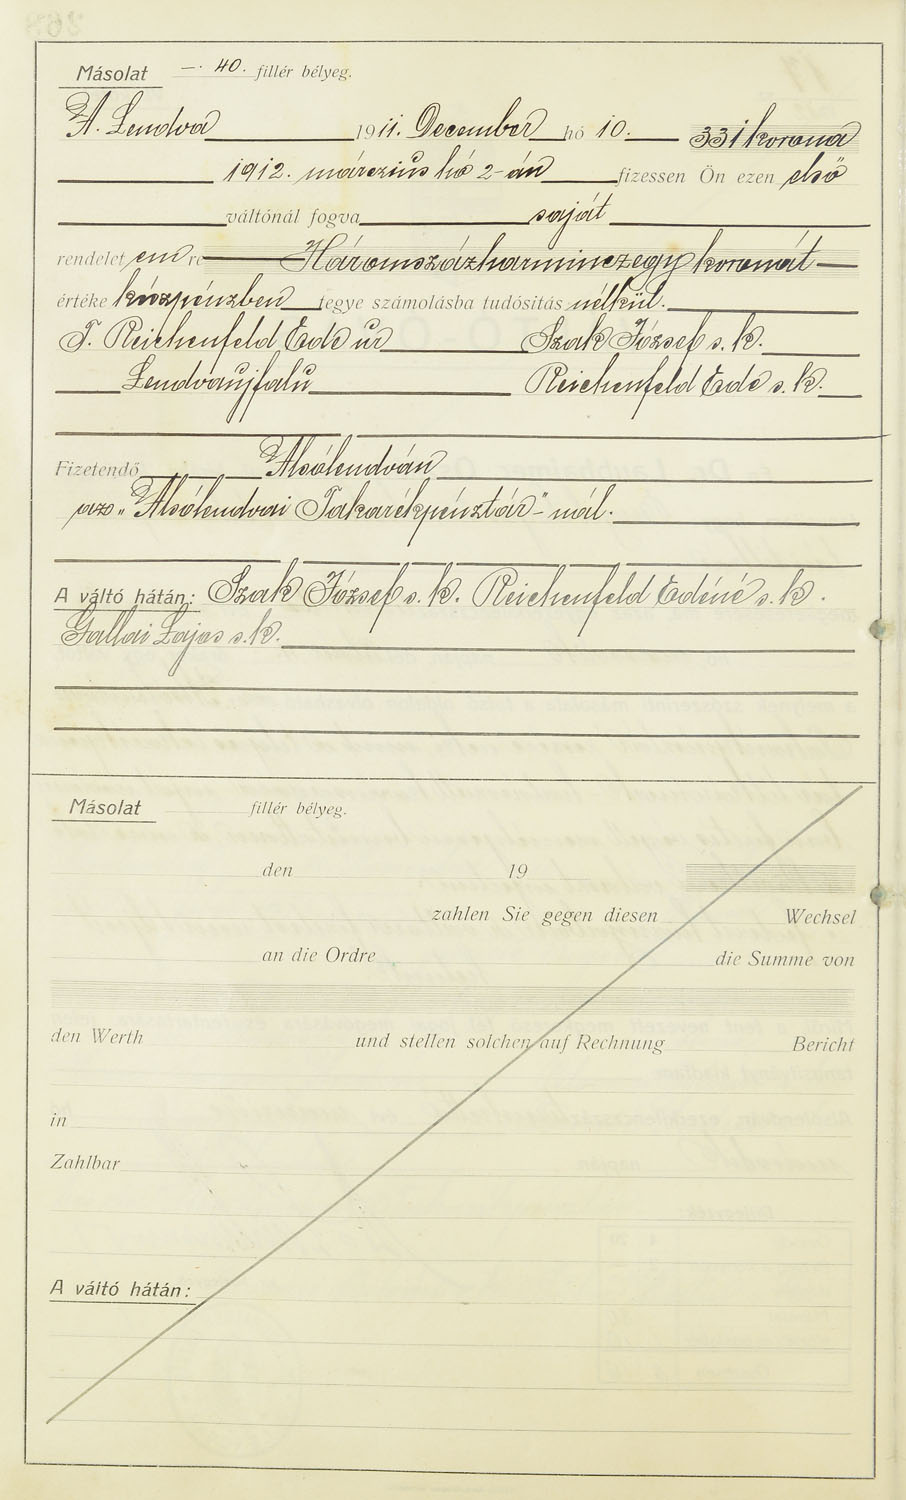 Másolat —· 40. fillér bélyeg.
A. Lendva 1911. December hó 10. 331 korona
1912. márczius hó 2-án fizessen Ön ezen első
váltónál fogva saját
rendelet em re Háromszázharminczegy koronát
értéke készpénzben tegye számolásba tudósítás nélkül.
T. Reichenfeld Ede úr Szak József s. k.
Lendvaujfalu Reichenfeld Ede s. k.
Fizetendő Alsólendván
az „Alsólendvai Takarékpénztár"-nál.
A váltó hátán: Szak József s. k. Reichenfeld Edéné s. k.
Gallai Lajos s. k.
Másolat fillér bélyeg.
den 19
zahlen Sie gegen diesen Wechsel
an die Ordre die Summe von
den Werth und stellen solchen auf Rechnung Bericht
in
Zahlbar
A váltó hátán: